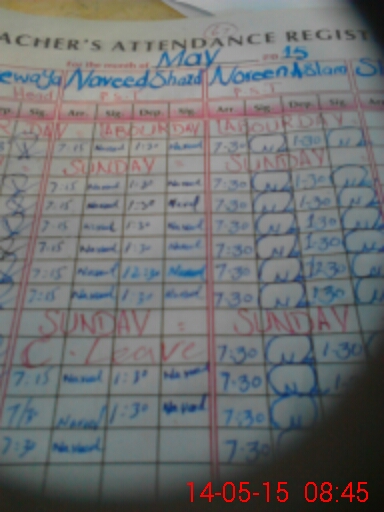 ACHER'S ATTENDANCE REGIST
For the month of May 2015
ewaya Naveed Shazd Noreen Aslam S
Head P.S.T P.S.T
ep. Sig. Arr. Sig. Dep. Sig. Arr. Sig. Dep. Sig.
DAY LABOURDAY LABOURDAY
7:15 Naveed 1:30 Naveed 7:30 1:30
SUNDAY = SUNDAY
7:15 Naveed 1:30 Naveed 7:30 1:30
7:15 Naveed 1:30 Naveed 7:30 1:30
7:15 Naveed 1:30 Naveed 7:30 1:30
7:15 Naveed 1:30 Naveed 7:30 1:30
7:15 Naveed 12:30 Naveed 7:30 12:30
7:15 Naveed 1:30 Naveed 7:30 1:30
SUNDAY = SUNDAY
C. Leave 7:30 1:30
7:15 Naveed 1:30 Naveed 7:30 1:
7:30 Naveed 1:30 Naveed 7:30
7:30 Naveed 7:30
14-05-15 08:45